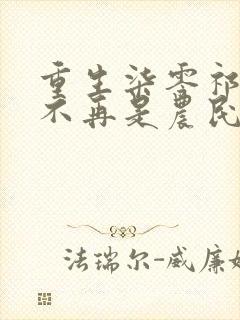 重生柒零祁
不再是農民
法瑞尔-威廉